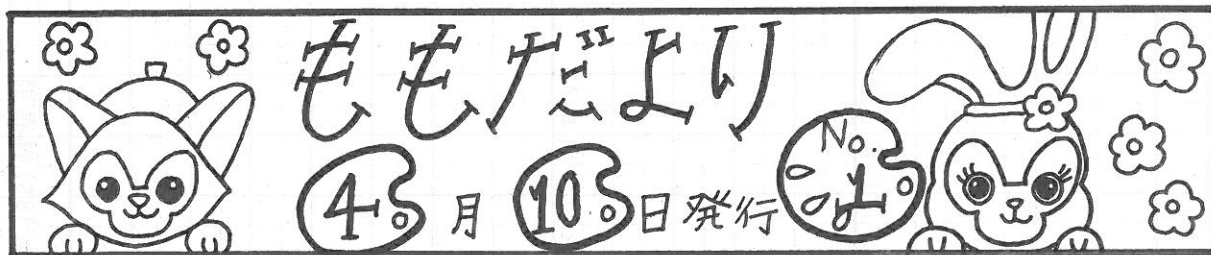 ももだより
4月10日発行 No.1